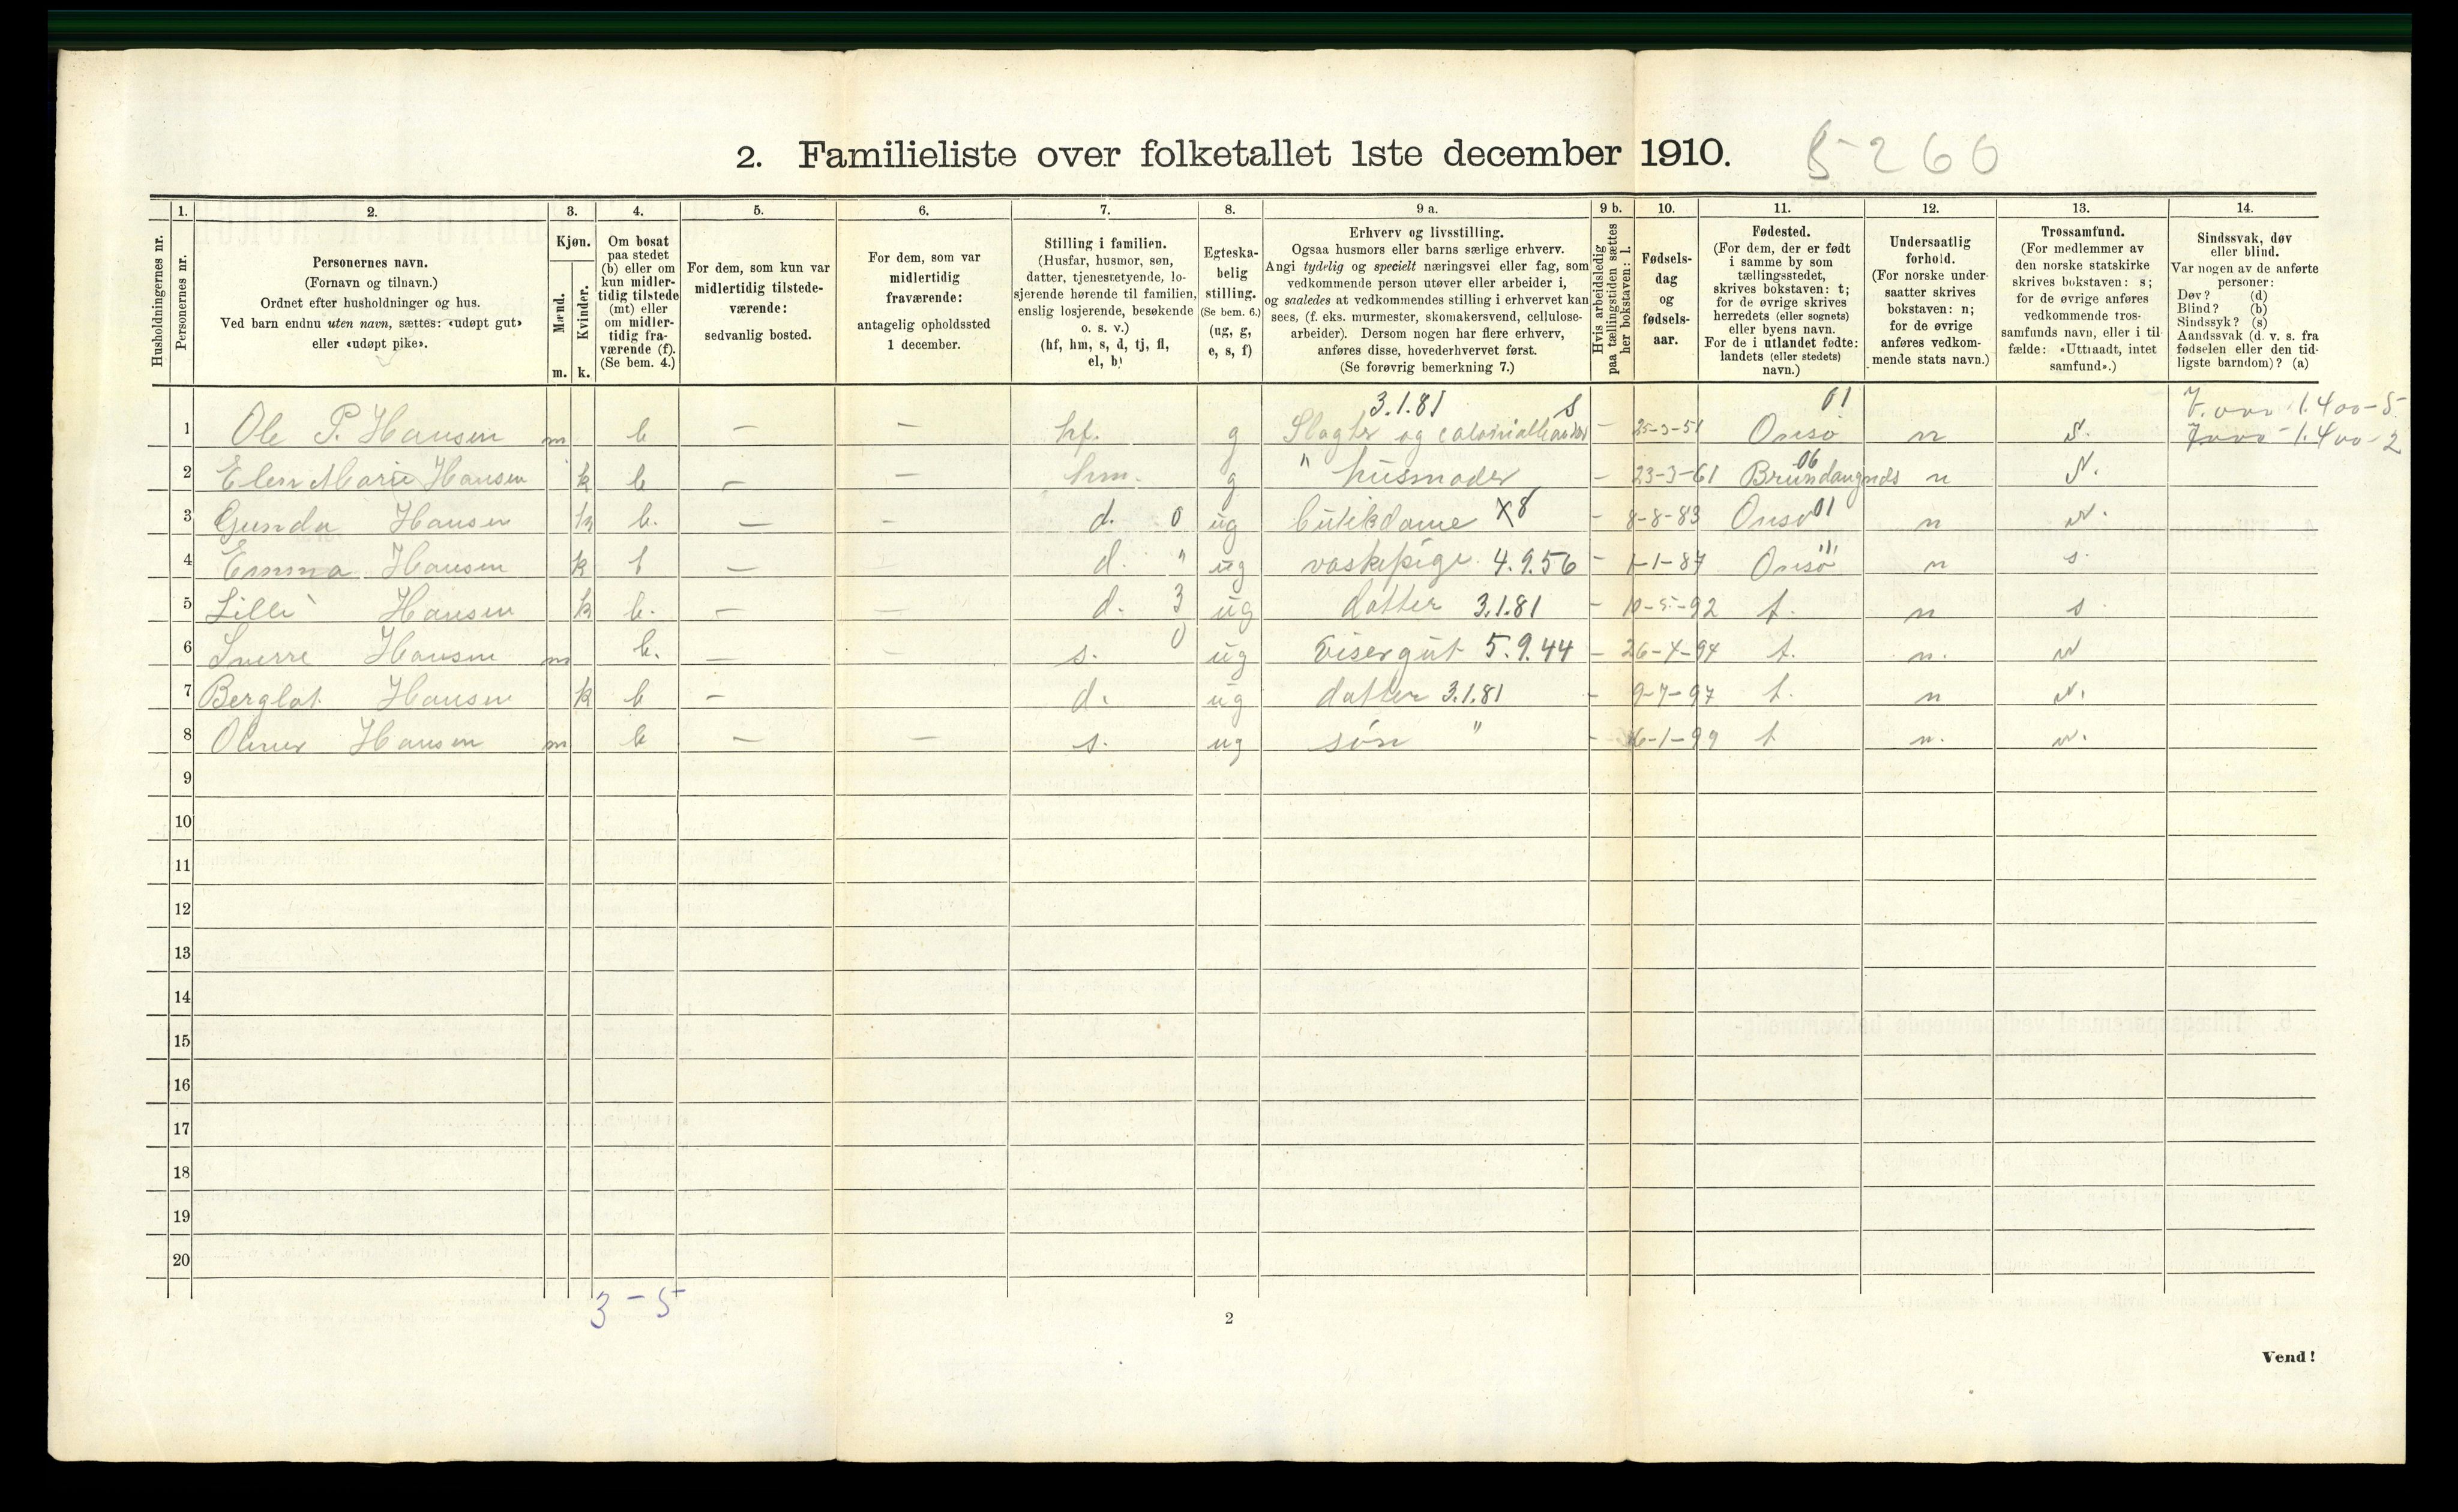 2. Familieliste over folketallet 1ste december 1910.
5-260
Husholdningernes nr.
1.
Personernes nr.
2.
Personernes navn.
(Fornavn og tilnavn.)
Ordnet efter husholdninger og hus.
Ved barn endnu uten navn, sættes: «udøpt gut»
eller «udøpt pike».
3.
Kjøn.
Mænd.
Kvinder.
m. k.
4.
Om bosat
paa stedet
(b) eller om
kun midler-
tidig tilstede
(mt) eller
om midler-
tidig fra-
værende (f).
(Se bem. 4.)
5.
For dem, som kun var
midlertidig tilstede-
værende:
sedvanlig bosted.
6.
For dem, som var
midlertidig
fraværende:
antagelig opholdssted
1 december.
7.
Stilling i familien.
(Husfar, husmor, søn,
datter, tjenestetyende, lo-
sjerende hørende til familien,
enslig losjerende, besøkende
o. s. v.)
(hf, hm, s, d, tj, fl,
el, b)
8.
Egteska-
belig
stilling.
(Se bem. 6.)
(ug, g,
e, s, f)
9 a.
Erhverv og livsstilling.
Ogsaa husmors eller barns særlige erhverv.
Angi tydelig og specielt næringsvei eller fag, som
vedkommende person utøver eller arbeider i,
og saaledes at vedkommendes stilling i erhvervet kan
sees, (f. eks. murmester, skomakersvend, cellulose-
arbeider). Dersom nogen har flere erhverv,
anføres disse, hovederhvervet først.
(Se forøvrig bemerkning 7.)
9 b.
Hvis arbeidsledig
paa tællingstiden sættes
her bokstaven: l.
10.
Fødsels-
dag
og
fødsels-
aar.
11.
Fødested.
(For dem, der er født
i samme by som
tællingsstedet,
skrives bokstaven: t;
for de øvrige skrives
herredets (eller sognets)
eller byens navn.
For de i utlandet fødte:
landets (eller stedets)
navn.)
12.
Undersaatlig
forhold.
(For norske under-
saatter skrives
bokstaven: n;
for de øvrige
anføres vedkom-
mende stats navn.)
13.
Trossamfund.
(For medlemmer av
den norske statskirke
skrives bokstaven: s;
for de øvrige anføres
vedkommende tros-
samfunds navn, eller i til-
fælde: «Uttraadt, intet
samfund».)
14.
Sindssvak, døv
eller blind.
Var nogen av de anførte
personer:
Døv? (d)
Blind? (b)
Sindssyk? (s)
Aandssvak (d. v. s. fra
fødselen eller den tid-
ligste barndom)? (a)
3.1.81 S 01
1 Ole P. Hansen m b — — hf. g Slagter og colonialhandler - 25-3-51 Onsø n s. 1.400-5
1.400-2
2 Elen Marie Hansen k b — — hm. g " husmoder - 23-3-61 06 n s.
3 Gunda Hansen k b. — - d. 0 ug butikdame X8 - 8-8-83 Onsø 01 n s.
4 Emma Hansen k b — d. " ug vaskepige 4.9.56 - 1-1-87 Onsø " n s
5 Lilli Hansen k b. — — d. 3 ug datter 3.1.81 - 10-5-92 t. n s
6 Sverre Hansen m b. — — s. 0 ug visergut 5.9.44 - 26-4-94 t. n. s
7 Berglot Hansen k b — d. ug datter 3.1.81 - 9-7-97 t. n s.
8 Hansen m b — — s. ug søn " - 16-1-99 t n. s.
9
10
11
12
13
14
15
16
17
18
19
20
3-5
2
Vend!